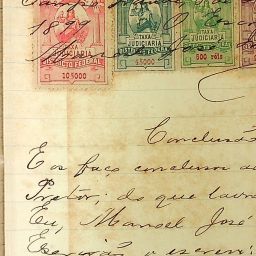 1899
TAXA JUDICIARIA
DISTRICTO FEDERAL
10$000
TAXA JUDICIARIA
DISTRICTO FEDERAL
TAXA JUDICIARIA
500 réis
Conclusão
E os faço conclusos ao
Pretor; do que lavro
Eu, Manoel José
Escrivão o escrevi